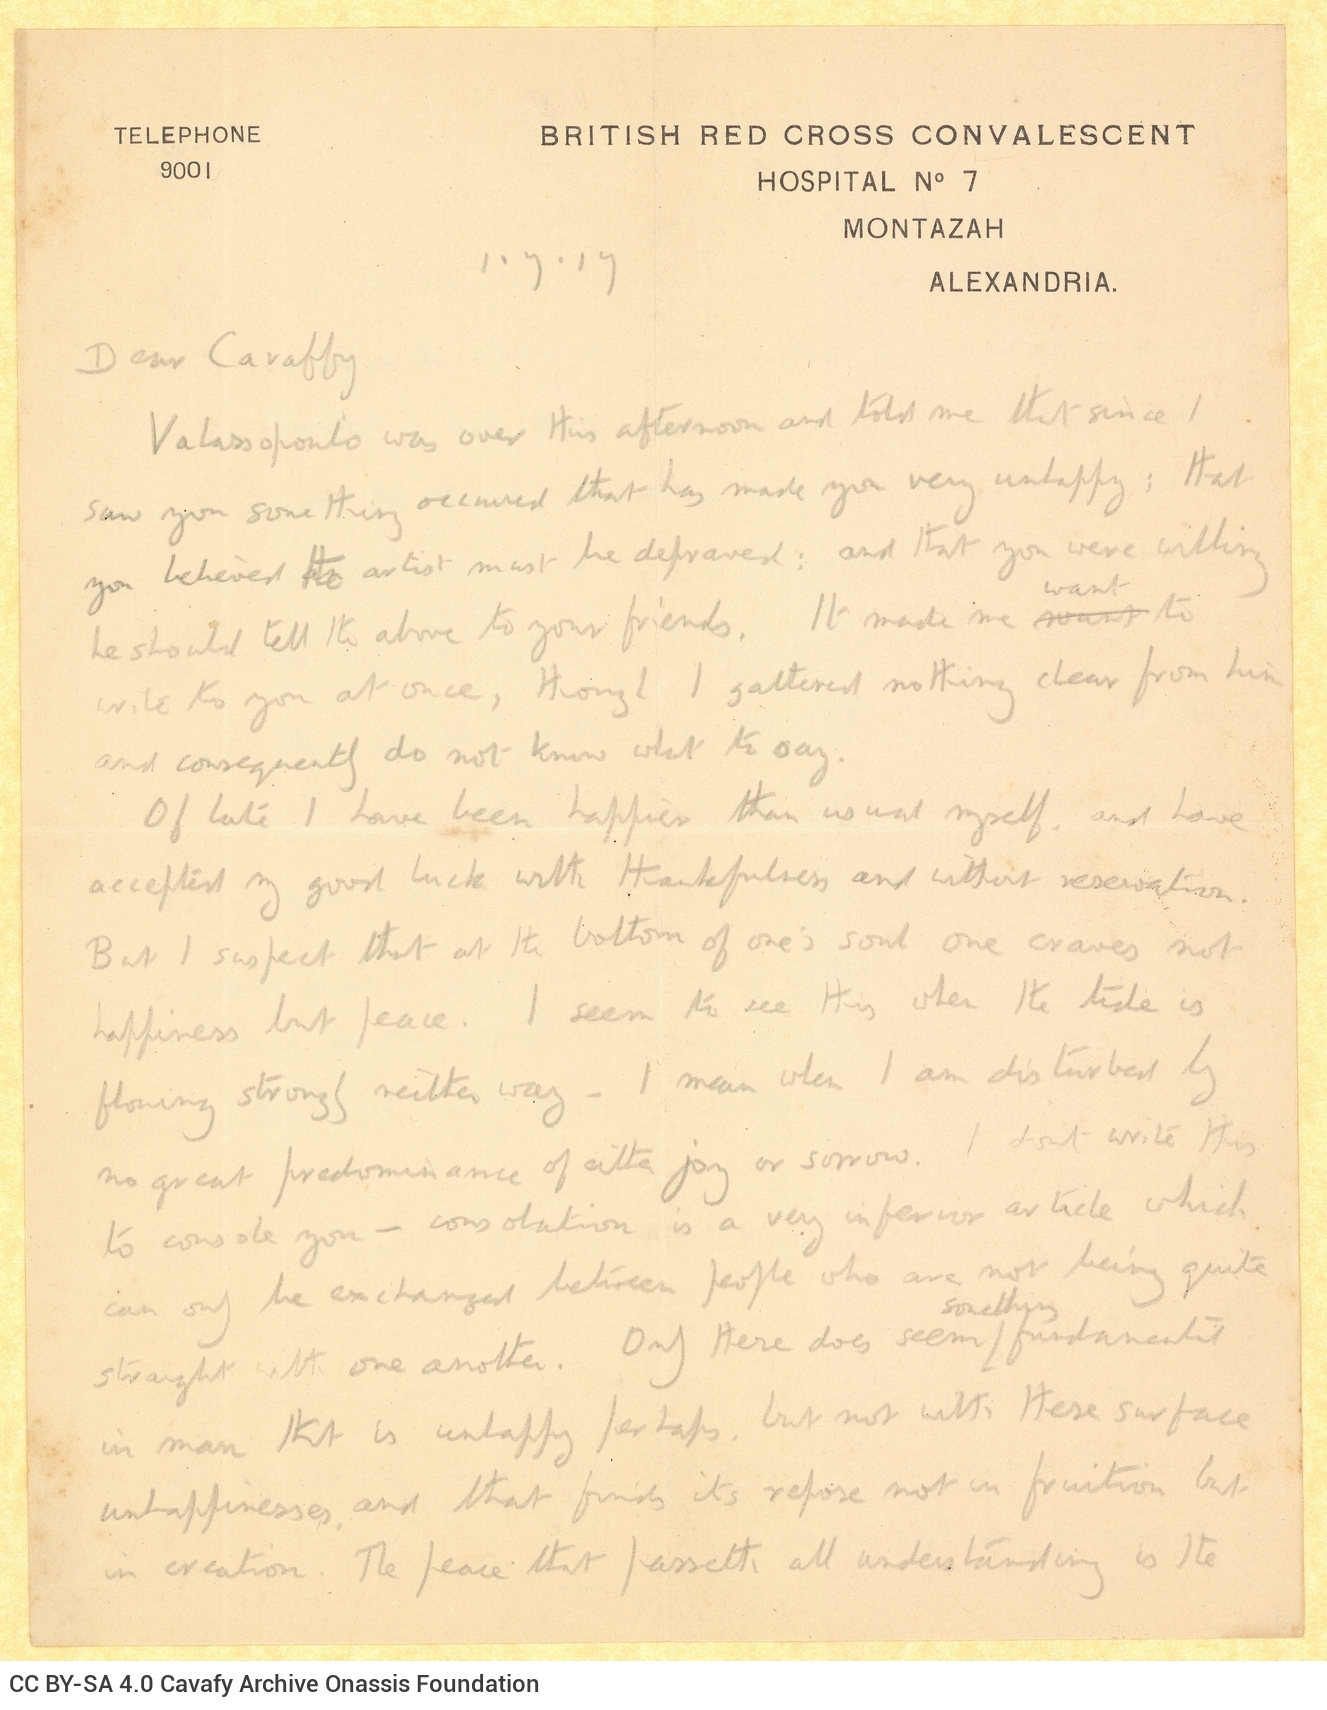 TELEPHONE
9001
BRITISH RED CROSS CONVALESCENT
HOSPITAL Nº 7
MONTAZAH
ALEXANDRIA.
1.7.17
Dear Cavaffy
Valassopoulo was over this afternoon and told me that since I
saw you something occurred that has made you very unhappy; that
you believed the artist must be depraved: and that you were willing
he should tell the above to your friends. It made me want to
write to you at once, though I gathered nothing clear from him
and consequently do not know what to say.
Of late I have been happier than usual myself, and have
accepted my good luck with thankfulness and without reservation.
But I suspect that at the bottom of one's soul one craves not
happiness but peace. I seem to see this when the tide is
flowing strongly neither way - I mean when I am disturbed by
no great predominance of either joy or sorrow. I dont write this
to console you - consolation is a very inferior article which
can only be exchanged between people who are not being quite
straight with one another. Only there does seem something fundamental
in man that is unhappy perhaps, but not with these surface
unhappinesses, and that finds its repose not in fruition but
in creation. The peace that passeth all understanding is the
CC BY-SA 4.0 Cavafy Archive Onassis Foundation